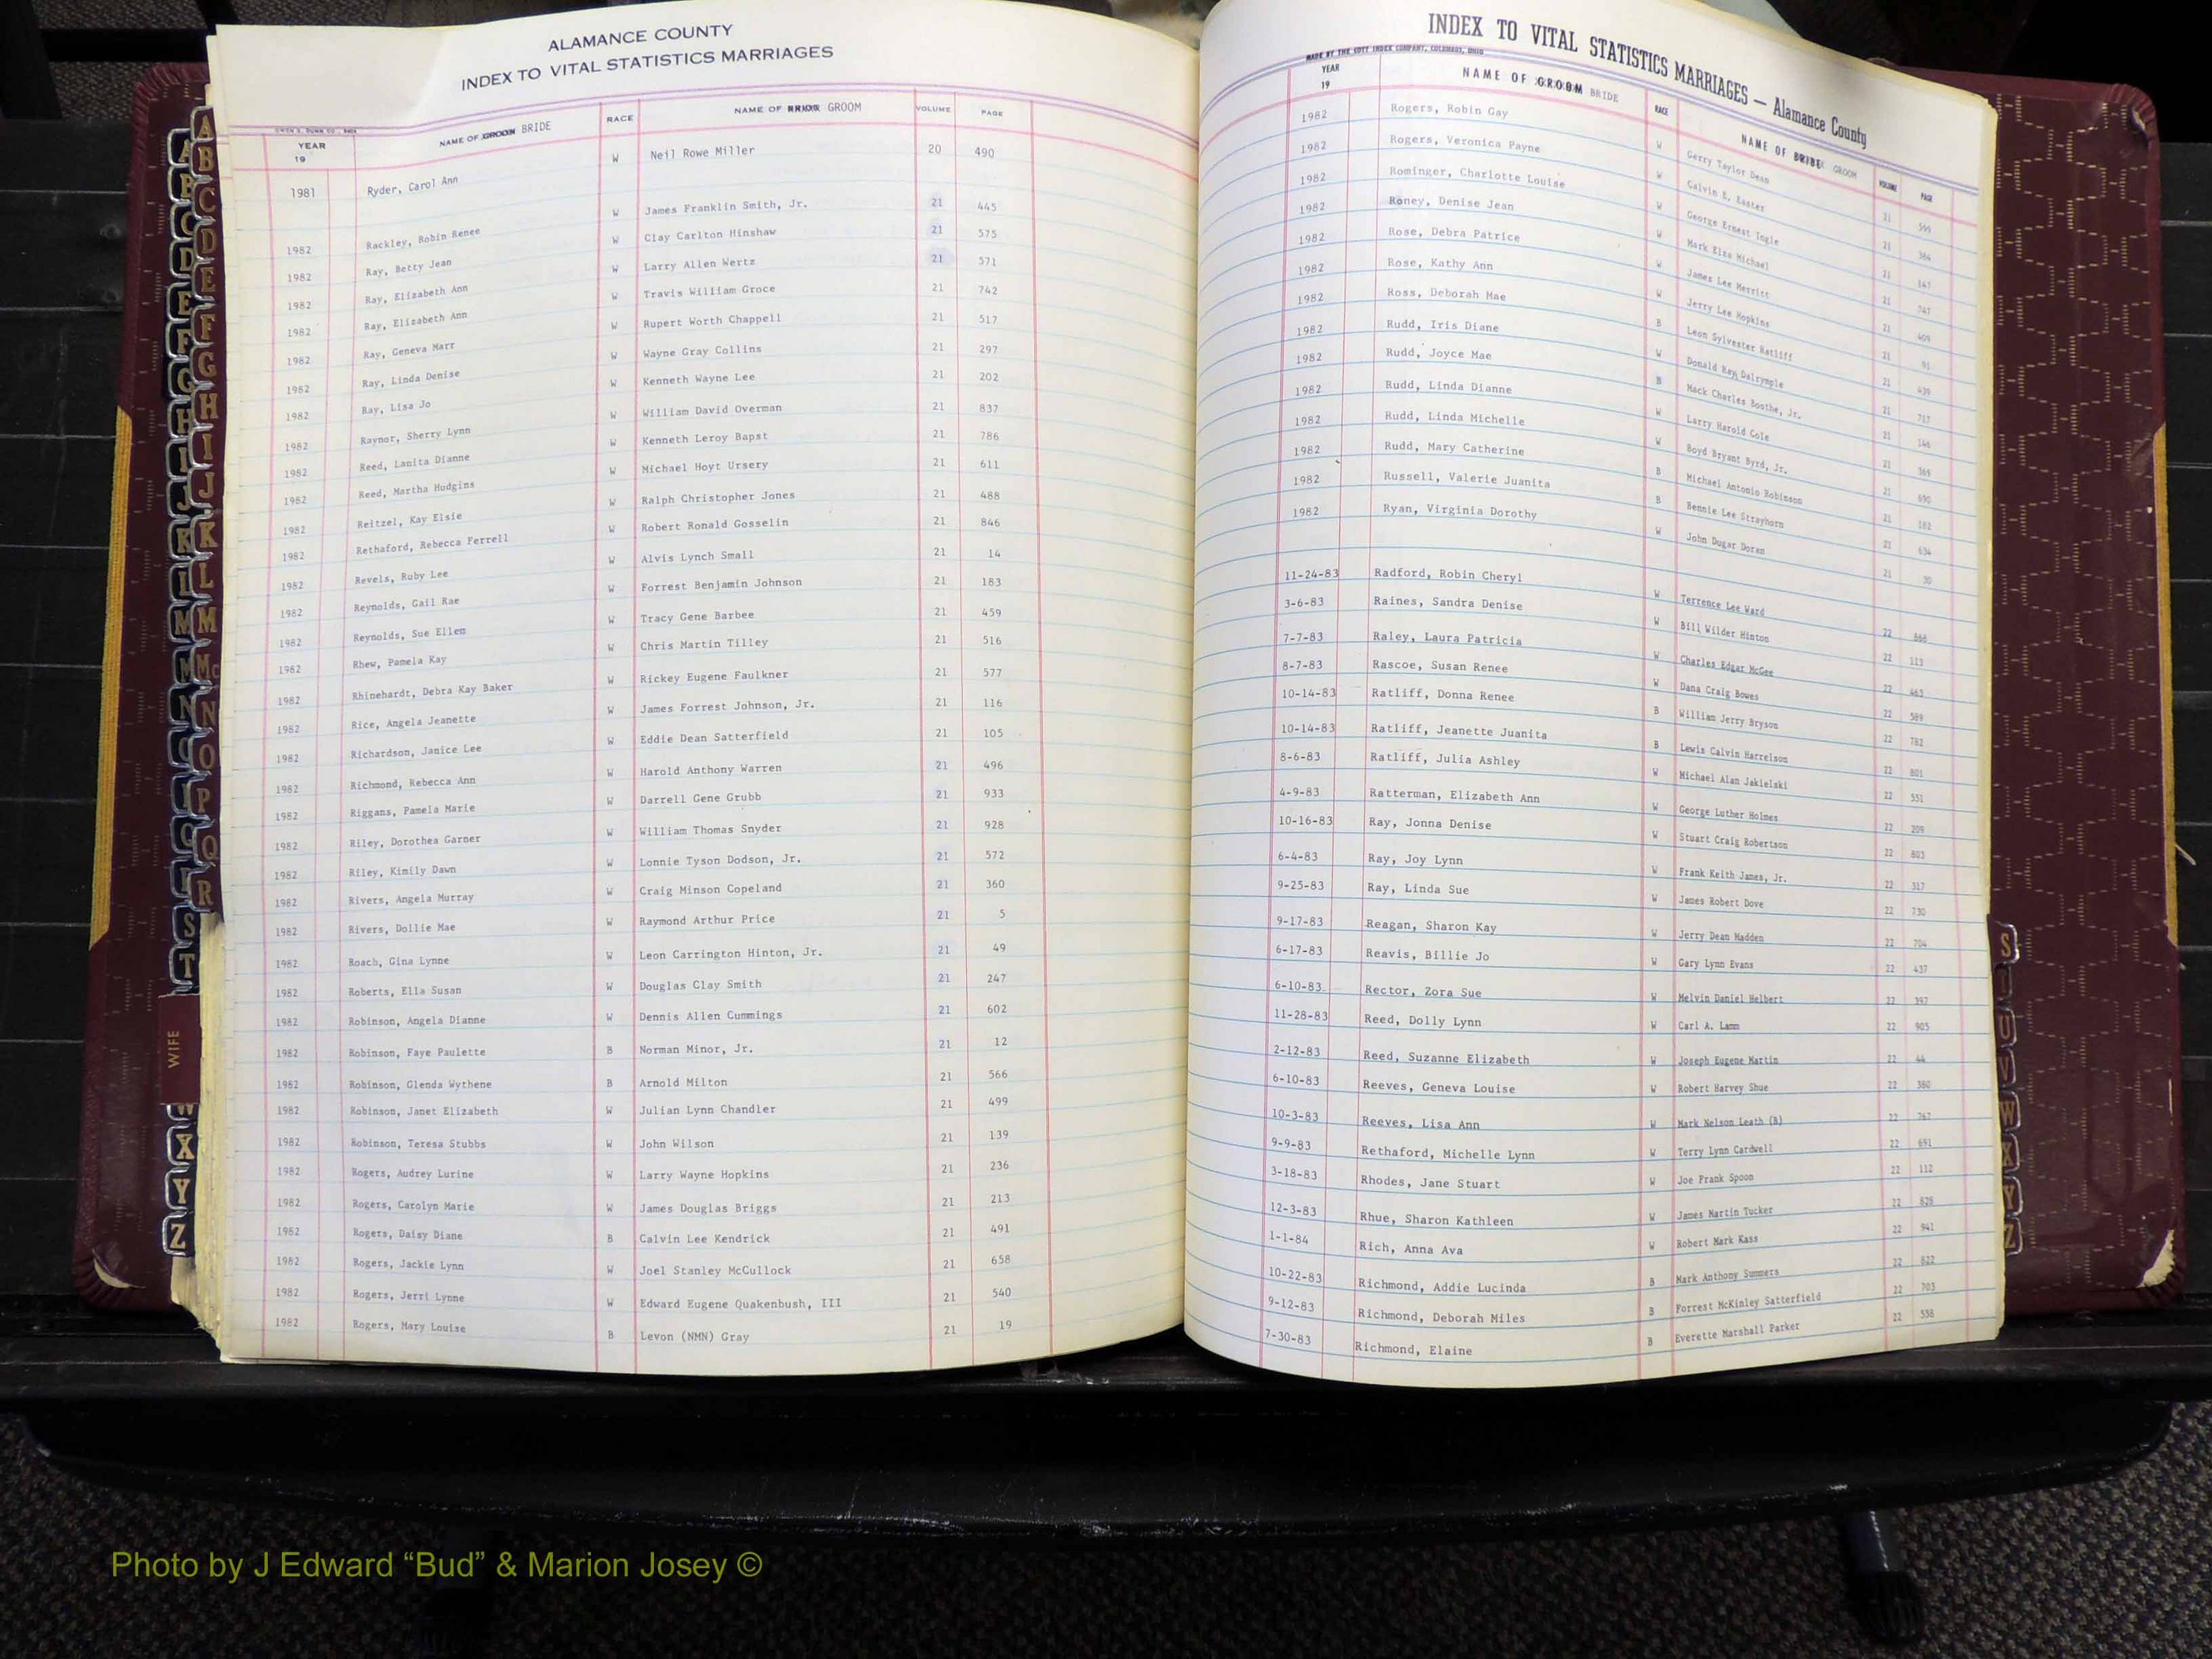 ALAMANCE COUNTY
INDEX TO VITAL STATISTICS MARRIAGES
OWEN G. DUNN CO.
YEAR 19 NAME OF GROOM BRIDE RACE NAME OF BRIDE GROOM VOLUME PAGE
1981 Ryder, Carol Ann W Neil Rowe Miller 20 490
1982 Rackley, Robin Renee W James Franklin Smith, Jr. 21 445
1982 Ray, Betty Jean W Clay Carlton Hinshaw 21 575
1982 Ray, Elizabeth Ann W Larry Allen Wertz 21 571
1982 Ray, Elizabeth Ann W Travis William Groce 21 742
1982 Ray, Geneva Marr W Rupert Worth Chappell 21 517
1982 Ray, Linda Denise W Wayne Gray Collins 21 297
1982 Ray, Lisa Jo W Kenneth Wayne Lee 21 202
1982 Raynor, Sherry Lynn W William David Overman 21 837
1982 Reed, Lanita Dianne W Kenneth Leroy Bapst 21 786
1982 Reed, Martha Hudgins W Michael Hoyt Ursery 21 611
1982 Reitzel, Kay Elsie W Ralph Christopher Jones 21 488
1982 Rethaford, Rebecca Ferrell W Robert Ronald Gosselin 21 846
1982 Revels, Ruby Lee W Alvis Lynch Small 21 14
1982 Reynolds, Gail Rae W Forrest Benjamin Johnson 21 183
1982 Reynolds, Sue Ellen W Tracy Gene Barbee 21 459
1982 Rhew, Pamela Kay W Chris Martin Tilley 21 516
1982 Rhinehardt, Debra Kay Baker W Rickey Eugene Faulkner 21 577
1982 Rice, Angela Jeanette W James Forrest Johnson, Jr. 21 116
1982 Richardson, Janice Lee W Eddie Dean Satterfield 21 105
1982 Richmond, Rebecca Ann W Harold Anthony Warren 21 496
1982 Riggans, Pamela Marie W Darrell Gene Grubb 21 933
1982 Riley, Dorothea Garner W William Thomas Snyder 21 928
1982 Riley, Kimily Dawn W Lonnie Tyson Dodson, Jr. 21 572
1982 Rivers, Angela Murray W Craig Minson Copeland 21 360
1982 Rivers, Dollie Mae W Raymond Arthur Price 21 5
1982 Roach, Gina Lynne W Leon Carrington Hinton, Jr. 21 49
1982 Roberts, Ella Susan W Douglas Clay Smith 21 247
1982 Robinson, Angela Dianne W Dennis Allen Cummings 21 602
1982 Robinson, Faye Paulette B Norman Minor, Jr. 21 12
1982 Robinson, Glenda Wythene B Arnold Milton 21 566
1982 Robinson, Janet Elizabeth W Julian Lynn Chandler 21 499
1982 Robinson, Teresa Stubbs W John Wilson 21 139
1982 Rogers, Audrey Lurine W Larry Wayne Hopkins 21 236
1982 Rogers, Carolyn Marie W James Douglas Briggs 21 213
1982 Rogers, Daisy Diane B Calvin Lee Kendrick 21 491
1982 Rogers, Jackie Lynn W Joel Stanley McCullock 21 658
1982 Rogers, Jerri Lynne W Edward Eugene Quakenbush, III 21 540
1982 Rogers, Mary Louise B Levon (NMN) Gray 21 19
INDEX TO VITAL STATISTICS MARRIAGES — Alamance County
MADE BY THE COTT INDEX COMPANY, COLUMBUS, OHIO
YEAR 19 NAME OF GROOM BRIDE RACE NAME OF BRIDE GROOM VOLUME PAGE
1982 Rogers, Robin Gay W Gerry Taylor Dean 21
1982 Rogers, Veronica Payne W Calvin E. Easter 21 364
1982 Rominger, Charlotte Louise W George Ernest Ingle 21 147
1982 Roney, Denise Jean W Mark Elza Michael 21 747
1982 Rose, Debra Patrice W James Lee Merritt 21 409
1982 Rose, Kathy Ann W Jerry Lee Hopkins 21 91
1982 Ross, Deborah Mae B Leon Sylvester Ratliff 21 439
1982 Rudd, Iris Diane W Donald Ray Dalrymple 21 717
1982 Rudd, Joyce Mae B Mack Charles Boothe, Jr. 21 146
1982 Rudd, Linda Dianne W Larry Harold Cole 21 369
1982 Rudd, Linda Michelle W Boyd Bryant Byrd, Jr. 21 690
1982 Rudd, Mary Catherine B Michael Antonio Robinson 21 182
1982 Russell, Valerie Juanita B Bennie Lee Strayhorn 21 634
1982 Ryan, Virginia Dorothy W John Dugar Doren 21 30
11-24-83 Radford, Robin Cheryl W Terrence Lee Ward 22
3-6-83 Raines, Sandra Denise W Bill Wilder Hinton 22 113
7-7-83 Raley, Laura Patricia W Charles Edgar McGee 22 463
8-7-83 Rascoe, Susan Renee W Dana Craig Bowes 22 589
10-14-83 Ratliff, Donna Renee B William Jerry Bryson 22 782
10-14-83 Ratliff, Jeanette Juanita B Lewis Calvin Harrelson 22 801
8-6-83 Ratliff, Julia Ashley W Michael Alan Jakielski 22 551
4-9-83 Ratterman, Elizabeth Ann W George Luther Holmes 22 209
10-16-83 Ray, Jonna Denise W Stuart Craig Robertson 22 803
6-4-83 Ray, Joy Lynn W Frank Keith James, Jr. 22 317
9-25-83 Ray, Linda Sue W James Robert Dove 22 730
9-17-83 Reagan, Sharon Kay W Jerry Dean Madden 22 704
6-17-83 Reavis, Billie Jo W Gary Lynn Evans 22 437
6-10-83 Rector, Zora Sue W Melvin Daniel Helbert 22 397
11-28-83 Reed, Dolly Lynn W Carl A. Lamm 22 905
2-12-83 Reed, Suzanne Elizabeth W Joseph Eugene Martin 22 44
6-10-83 Reeves, Geneva Louise W Robert Harvey Shue 22 380
10-3-83 Reeves, Lisa Ann W Mark Nelson Leath (B) 22 762
9-9-83 Rethaford, Michelle Lynn W Terry Lynn Cardwell 22 691
3-18-83 Rhodes, Jane Stuart W Joe Frank Spoon 22 112
12-3-83 Rhue, Sharon Kathleen W James Martin Tucker 22 828
1-1-84 Rich, Anna Ava W Robert Mark Kass 22 941
10-22-83 Richmond, Addie Lucinda B Mark Anthony Summers 22 822
9-12-83 Richmond, Deborah Miles B Forrest McKinley Satterfield 22 703
7-30-83 Richmond, Elaine B Everette Marshall Parker 22 558
A B C D E F G H I J K L M Mc N O P Q R
S T WIFE W X Y Z
S T U V W X Y Z
Photo by J Edward “Bud” & Marion Josey ©